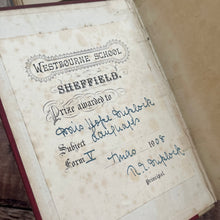 WESTBOURNE SCHOOL
SHEFFIELD.
Prize awarded to
Miss Hope Inflock
Subject Languages
Form V Xmas 1908
Principal